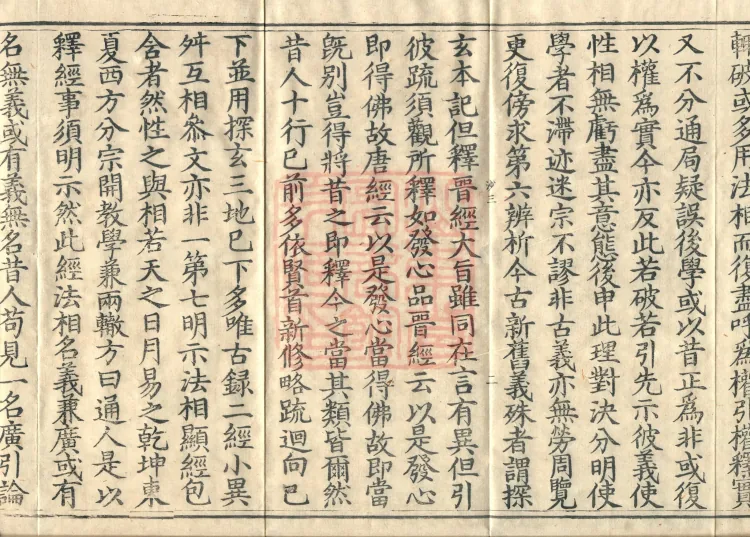 轉破或多用法相而復盡呼爲權引權釋實
又不分通局疑誤後學或以昔正爲非或復
以權爲實今亦反此若破若引先示彼義使
性相無虧盡其意態後申此理對決分明使
學者不滯迹迷宗不謬非古義亦無勞周覽
更復傍求第六辨析今古新舊義殊者謂探
玄本記但釋晉經大旨雖同在言有異但引
彼疏須觀所釋如發心品晉經云以是發心
即得佛故唐經云以是發心當得佛故即當
旣別豈得將昔之即釋今之當其類皆爾然
昔人十行已前多依賢首新修略疏迴向已
下並用探玄三地已下多唯古録二經小異
舛互相叅文亦非一第七明示法相顯經包
含者然性之與相若天之日月易之乾坤東
夏西方分宗開教學兼兩轍方曰通人是以
釋經事須明示然此經法相名義兼廣或有
名無義或有義無名昔人苟見一名廣引論